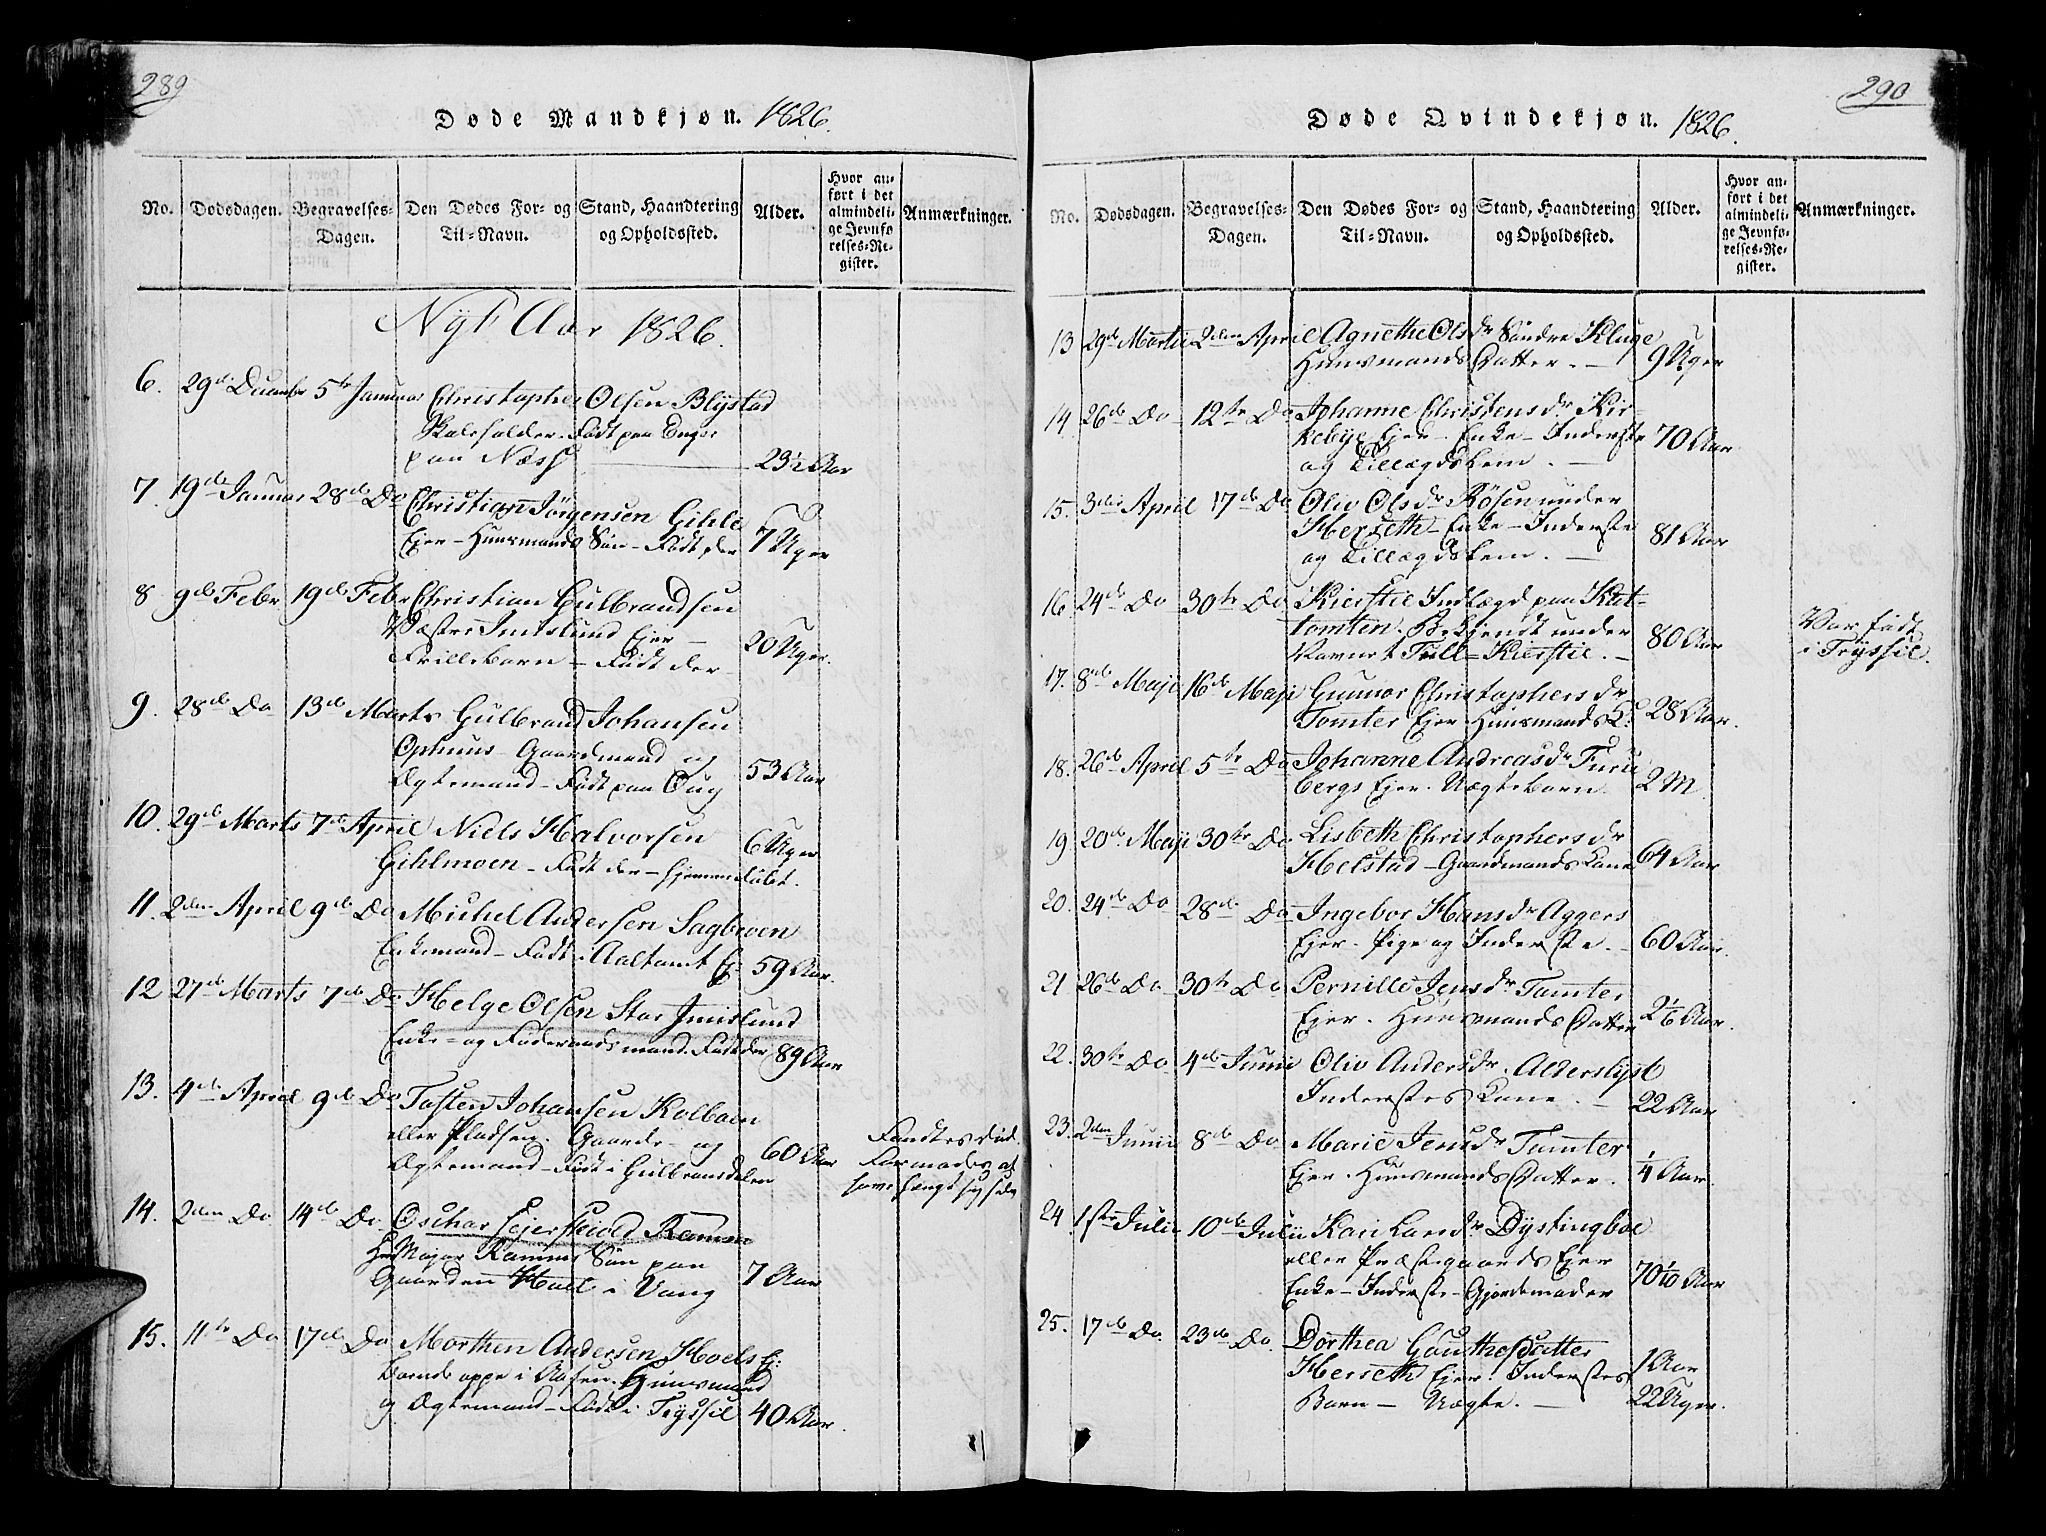 289
Døde Mandkjøn. 1826.
No. Dødsdagen. Begravelses-Dagen. Den Dødes For- og Til-Navn. Stand, Haandtering og Opholdssted. Alder. Hvor anført i det almindelige Jevnførelses-Register. Anmærkninger.
Nÿt Aar 1826.
6. 29de Decembr 5te Januar Christopher Olsen Blÿstad
Skoleholder. Født paa Enger
paa Næss 23½ Aar
7. 19de Januar 28de Do Christian Jörgensen Gihle
Ejer - Huusmands Søn - Født der 7 Uger
8 9de Febr 19de Febr Christian Gulbrandsen
Væstre Imislund Ejer -
Frillebarn - Født der 20 Uger.
9. 28de Do 13de Marts Gulbrand Johansen
Ophuus - Gaardmand og
Ægtemand - Født paa 53 Aar
10. 29de Marts 7de April Niels Halvorsen
Gihlmoen - Født der - hjemmedøbt. 6 Uger
11. 2den April 9de Do Michel Andersen Sagbroen
Enkemand - Født i Aaltamt Ej: 59 Aar.
12 27de Marts 7de Do Helge Olsen Stor Imislund
Enke- og Føderaadsmand. Født der 89 Aar
13. 4de April 9de Do Tosten Johansen Kolboen
eller Pladsen. Gaard- og
Ægtemand - Født i Gulbransdalen 60 Aar Fandtes død.
Formodes at
have hængt sig selv
14. 2den Do 14de Do Oschar Sejersköld Ramm
Hr Major Ramms Søn paa
Gaarden Hoel i Vang 7 Aar
15. 11te Do 17de Do Morthen Andersen Hoels Ej:
boende oppe i Aasen. Huusmand
og Ægtemand - Født i Trÿssil 40 Aar.
290
Døde Qvindekjøn. 1826.
No. Dødsdagen. Begravelses-Dagen. Den Dødes For- og Til-Navn. Stand, Haandtering og Opholdssted. Alder. Hvor anført i det almindelige Jevnførelses-Register. Anmærkninger.
13 29de Martii 2den April Agnethe Olsdr Söndre Kluge
Huusmands Datter. - 9 Uger
14. 26de Do 12te Do Johanne Christensdr Kir-
kebÿe Ejer - Enke - Inderste
og Tillægdslem. - 70 Aar
15. 3die April 17de Do Oliv Olsdr Rösen under
Herseth - Enke - Inderste
og Tillægdslem. - 81 Aar
16. 24de Do 30te Do Kierstie Indlægd paa Kat-
tomten. Bekjendt under
Navnet Tull-Kierstie. - 80 Aar Var født
i Trÿssil.
17. 8de Maji 16de Maji Gunnor Christophersdr
Tomter Ejer. Huusmands D: 28 Aar.
18. 26de April 5te Do Johanne Andreasdr Furu
bergs Ejer. Uægtebarn. 2 M.
19 20de Maji 30te Do Lisbeth Christophersdr
Helstad - Gaardmands Kone 64 Aar
20. 24de Do 28de Do Ingebor Hansdr Aggers
Ejer. Pige og Inderste. - 60 Aar.
21 26de Do 30te Do Pernille Jensdr Tomter
Ejer. Huusmands Datter 2 1/6 Aar.
22. 30te Do 4de Junii Oliv Andersdr. Alderslÿst
Inderstes Kone. - 22 Aar
23. 2den Junii 8de Do Marie Jensdr Tomter
Ejer. Huusmands Datter. 1/4 Aar.
24 1ste Julii 10de Julii Kari Larsdr Dÿstingboe
eller Præstegaards Ejer
Enke - Inderste - Gjordemoder 70 1/10 Aar
25. 17de Do. 23de Do. Dorthea Gouthesdatter
Herseth Ejer. Inderstes
Barn - Uægte. - 1 Aar
22 Uger.